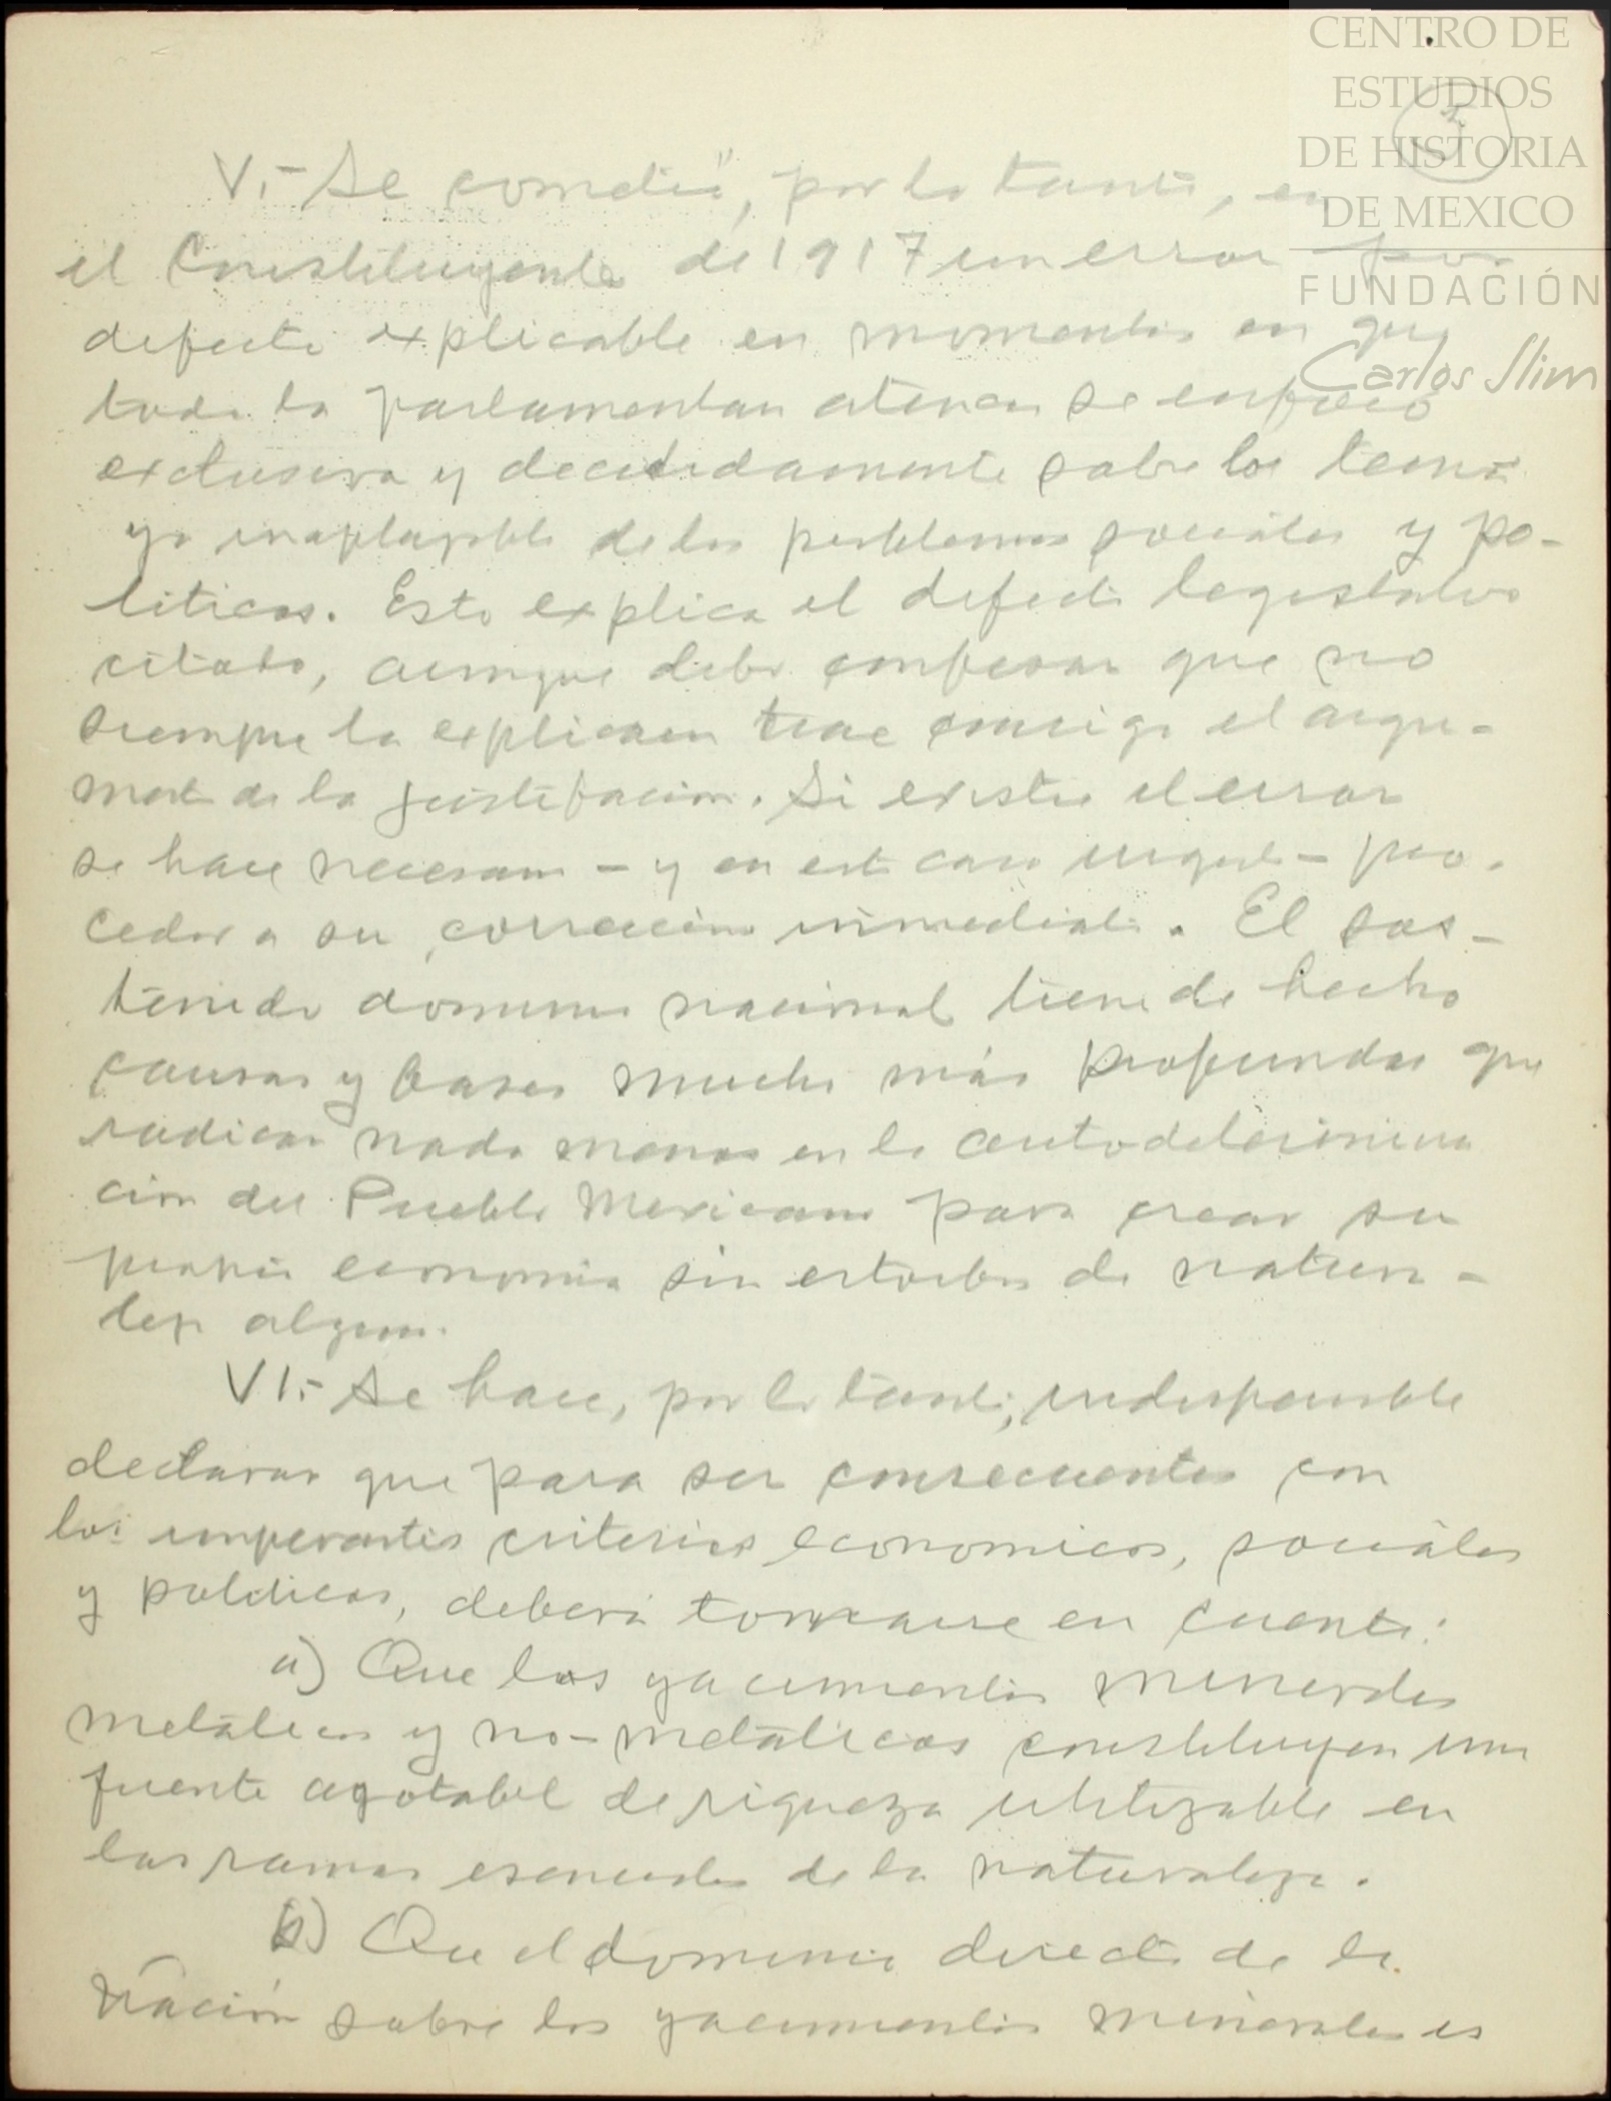 CENTRO DE
ESTUDIOS
DE HISTORIA
DE MEXICO
FUNDACIÓN
Carlos Slim
V.- Se cometió, por lo tanto, en
el Constituyente de 1917 un error por
defecto explicable en momentos en que
toda la parlamentaria atencion se enfocó
exclusiva y decididamente sobre los temas
ya inaplazables de los problemas sociales y po-
liticos. Esto explica el defecto legislativo
citado, aunque debo confesar que no
siempre la explicacion trae consigo el argu-
mento de la justificacion. Si existe el error
se hace necesario - y en este caso urgente - pro-
ceder a su correccion inmediata. El sos-
tenido dominio nacional tiene de hecho
causas y bases mucho más profundas que
radican nada menos en la autodetermina
ción del Pueblo Mexicano para crear su
propia economia sin estorbos de natura-
leza alguna.
VI.- Se hace, por lo tanto, indispensable
declarar que para ser consecuentes con
los imperantes criterios economicos, sociales
y politicos, deberá tomarse en cuenta:
a) Que los yacimientos minerales
metálicos y no-metálicos constituyen una
fuente agotabel de riqueza utilizable en
las ramas esenciales de la naturaleza.
b) Que el dominio directo de la
Nación sobre los yacimientos minerales es